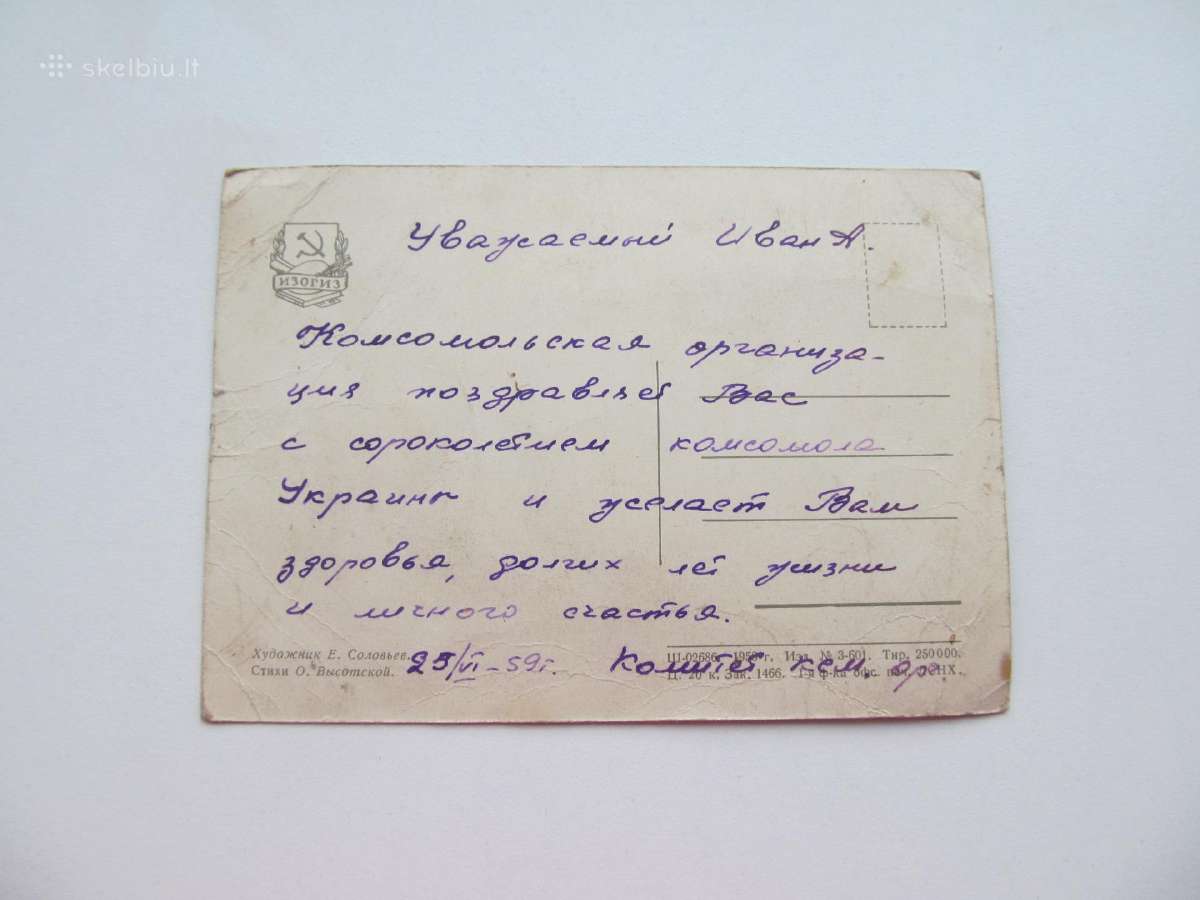 skelbiu.lt
Уважаемый Иван А.
ИЗОГИЗ
Комсомольская организа-
ция поздравляет Вас
с сороколетием комсомола
Украины и желает Вам
здоровья, долгих лет жизни
и личного счастья.
Художник Е. Соловьев.
Стихи О. Высотской.
25/VI-59г.
Комитет ком. орг.
Ш-02686. г. Изд. № 3-601. Тир. 250000.
Ц. 20 к. Зак. 1466. 1-я ф-ка офс. печ.